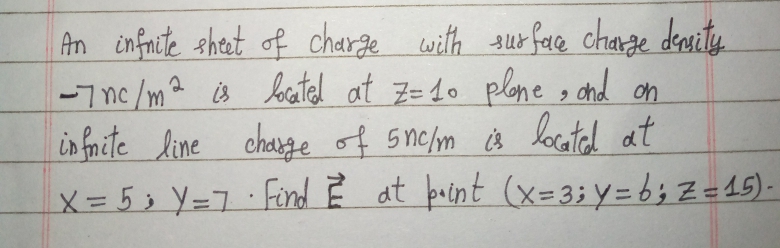 An infnite sheet of charge with surface charge density
-7nc/m² is located at z=10 plane, and an
infnite line charge of 5nc/m is located at
X=5; Y=7. Find E⃗ at point (x=3; y=6; z=15).